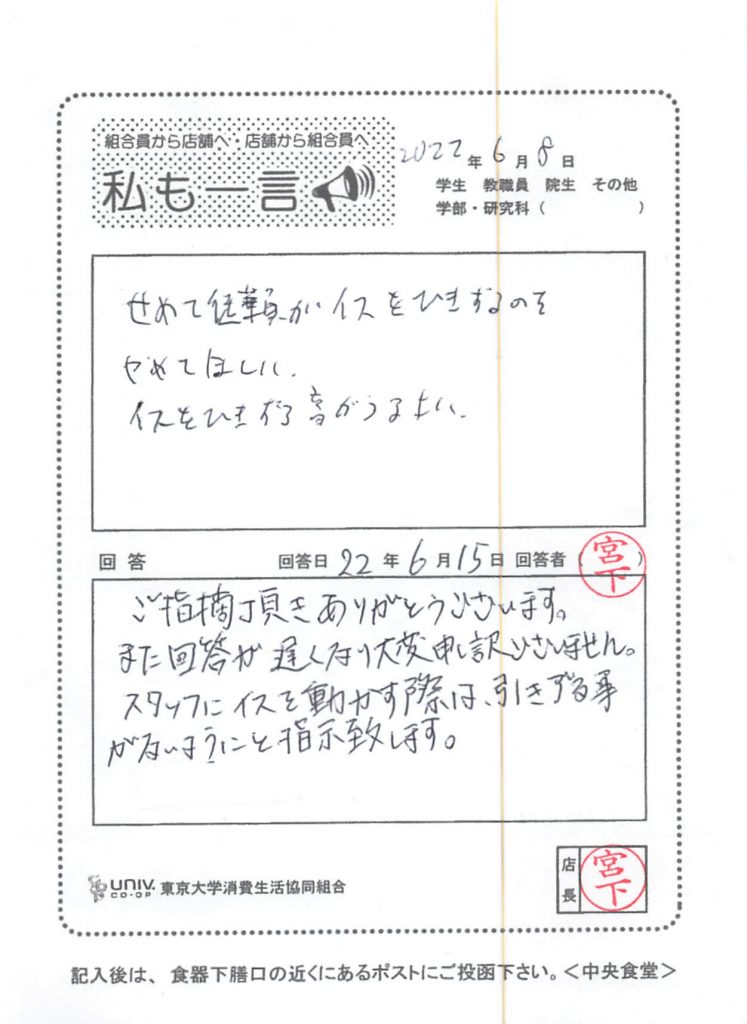 組合員から店舗へ・店舗から組合員へ
私も一言
2022年6月8日
学生 教職員 院生 その他
学部・研究科( )
せめて従業員がイスをひきずるのを
やめてほしい.
イスをひきずる音がうるさい.
回答 回答日 22年6月15日 回答者(宮下)
ご指摘頂きありがとうございます。
また回答が遅くなり大変申し訳ございません。
スタッフにイスを動かす際は、引きずる事
がないようにと指示致します。
UNIV. CO-OP 東京大学消費生活協同組合
店長 宮下
記入後は、食器下膳口の近くにあるポストにご投函下さい。<中央食堂>